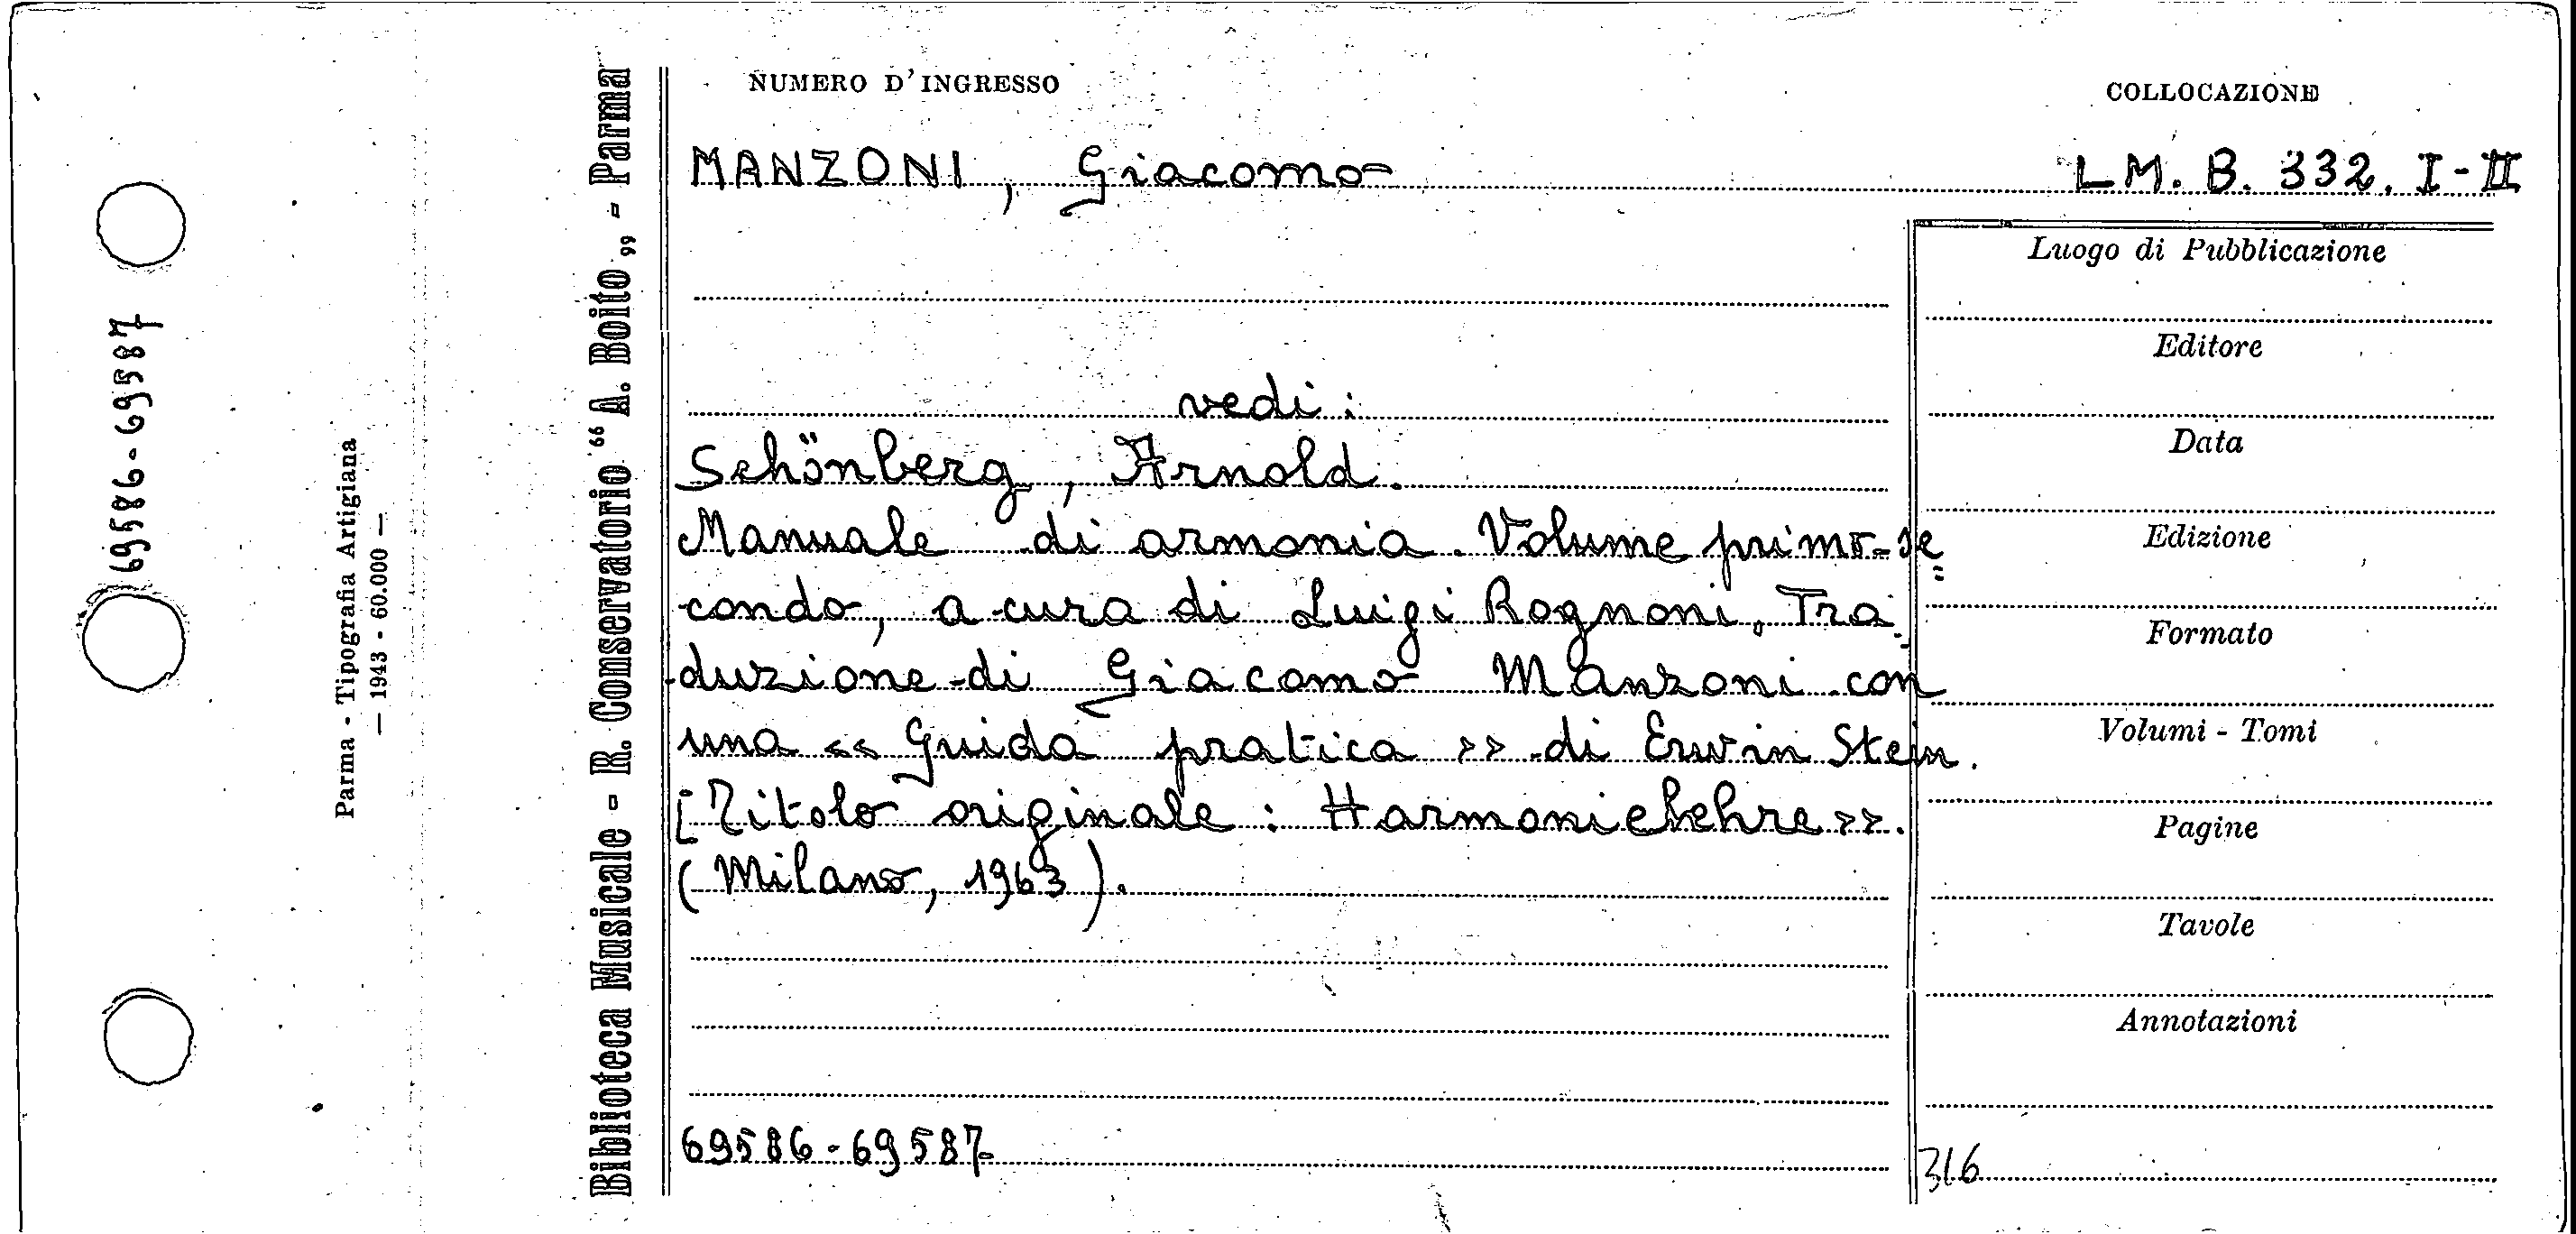 69586-69587
Parma - Tipografia Artigiana
— 1943 - 60.000 —
Biblioteca Musicale - R. Conservatorio “ A. Boito „ - Parma
NUMERO D'INGRESSO
COLLOCAZIONE
MANZONI, Giacomo
LM. B. 332. I-II
vedi:
Schönberg, Arnold.
Manuale di armonia. Volume primo-se=
condo, a cura di Luigi Rognoni. Tra=
duzione di Giacomo Manzoni con
una << Guida pratica >> di Erwin Stein.
[Titolo originale: Harmonielehre>>.
(Milano, 1963).
69586-69587
Luogo di Pubblicazione
Editore
Data
Edizione
Formato
Volumi - Tomi
Pagine
Tavole
Annotazioni
316